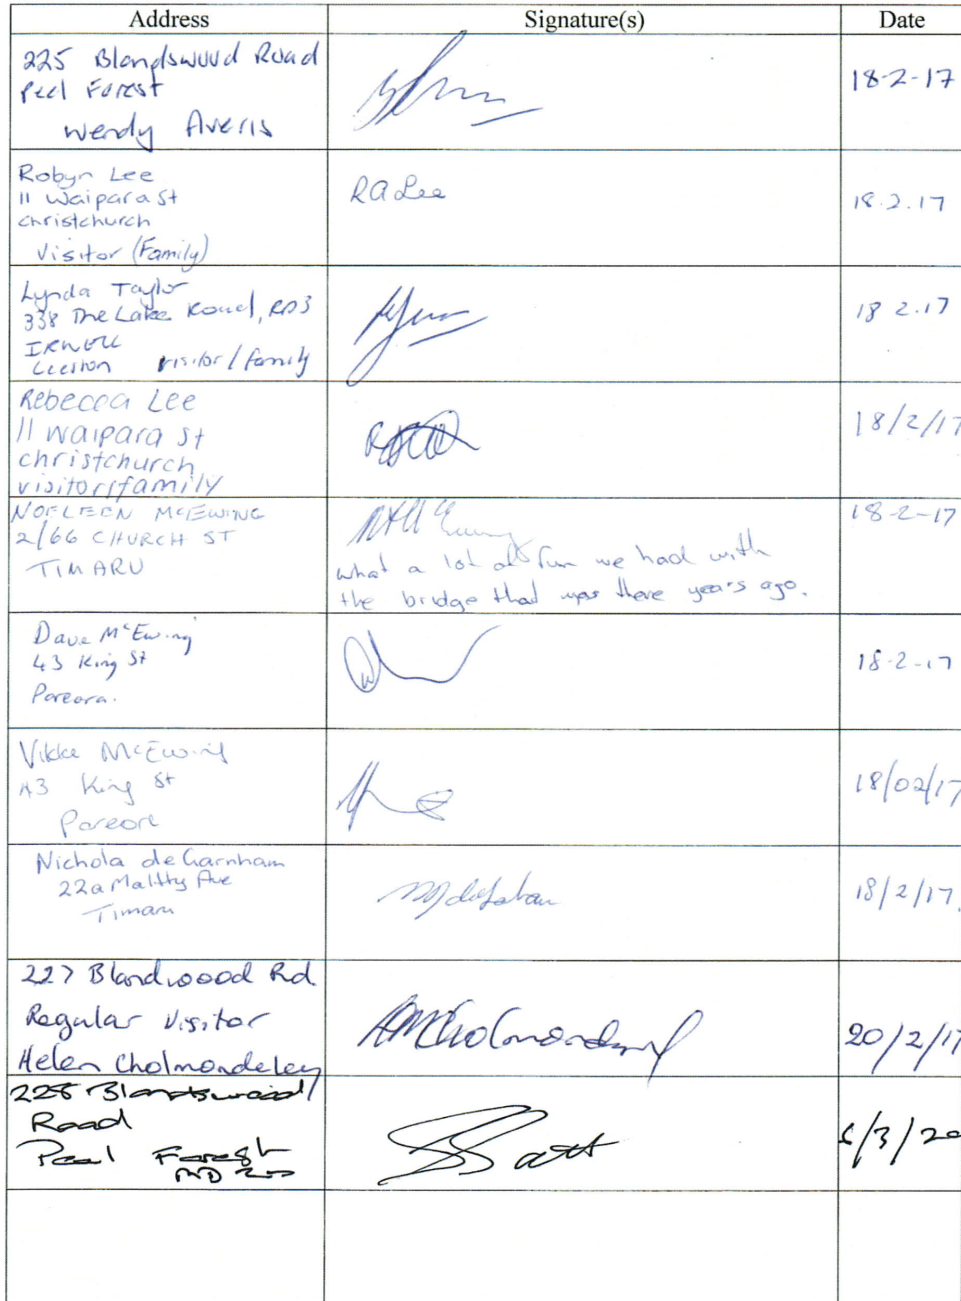 Address Signature(s) Date
225 Blandswood Road
Peel Forest
Wendy Averis
18-2-17
Robyn Lee
11 Waipara St
Christchurch
Visitor (Family)
RA Lee
18.2.17
Lynda Taylor
338 The Lake Road, RD3
IRWELL
Leeston visitor/family
18 2.17
Rebecca Lee
11 Waipara St
christchurch
visitor/family
18/2/17
NOELEEN MCEWING
2/66 CHURCH ST
TIMARU
what a lot of fun we had with
the bridge that was there years ago.
18-2-17
Dave McEwing
43 King St
Pareora.
18-2-17
Vikke McEwing
43 King St
Pareora
18/02/17
Nichola de Garnham
22a Maltby Ave
Timaru
18/2/17.
227 Blandswood Rd
Regular Visitor
Helen Cholmondeley
Cholmondeley
20/2/17
Blandswood
Road
Peel Forest
/3/20